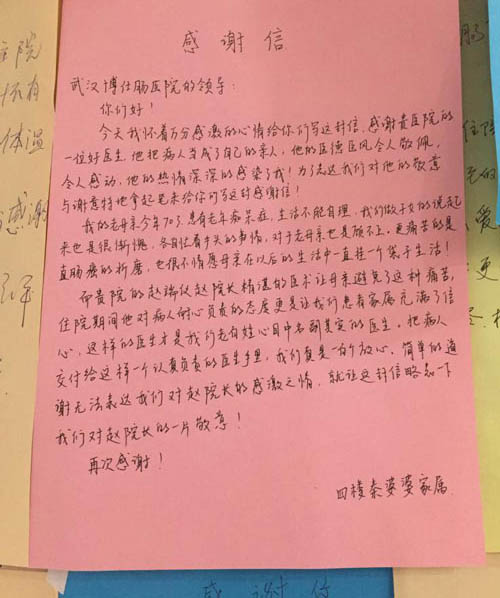 感谢信
武汉博仕肠医院的领导:
你们好!
今天我怀着万分感激的心情给你们写这封信,感谢贵医院的
一位好医生,他把病人当成了自己的亲人,他的医德医风令人敬佩,
令人感动,他的热情深深的感染了我!为了表达我们对他的敬意
与谢意特地拿起笔来给你们写这封感谢信!
我的老母亲今年70了患有老年痴呆症,生活不能自理,我们做子女的说起
来也是很惭愧,各自忙着手头的事情,对于老母亲也是顾不上,更痛苦的是
直肠癌的折磨,也很不情愿母亲在以后的生活中一直挂一个袋子生活!
而贵院的赵端仪赵院长精湛的医术让母亲避免了这种痛苦,
住院期间他对病人耐心负责的态度更是让我们患者家属充满了信
心,这样的医生才是我们老百姓心目中名副其实的医生,把病人
交付给这样一个认真负责的医生手里,我们真是一百个放心,简单的道
谢无法表达我们对赵院长的感激之情,就让这封信略表一下
我们对赵院长的一片敬意!
再次感谢!
四楼秦婆婆家属
住院
怀有
体温
感谢
肠
住院
爱
更
感谢信